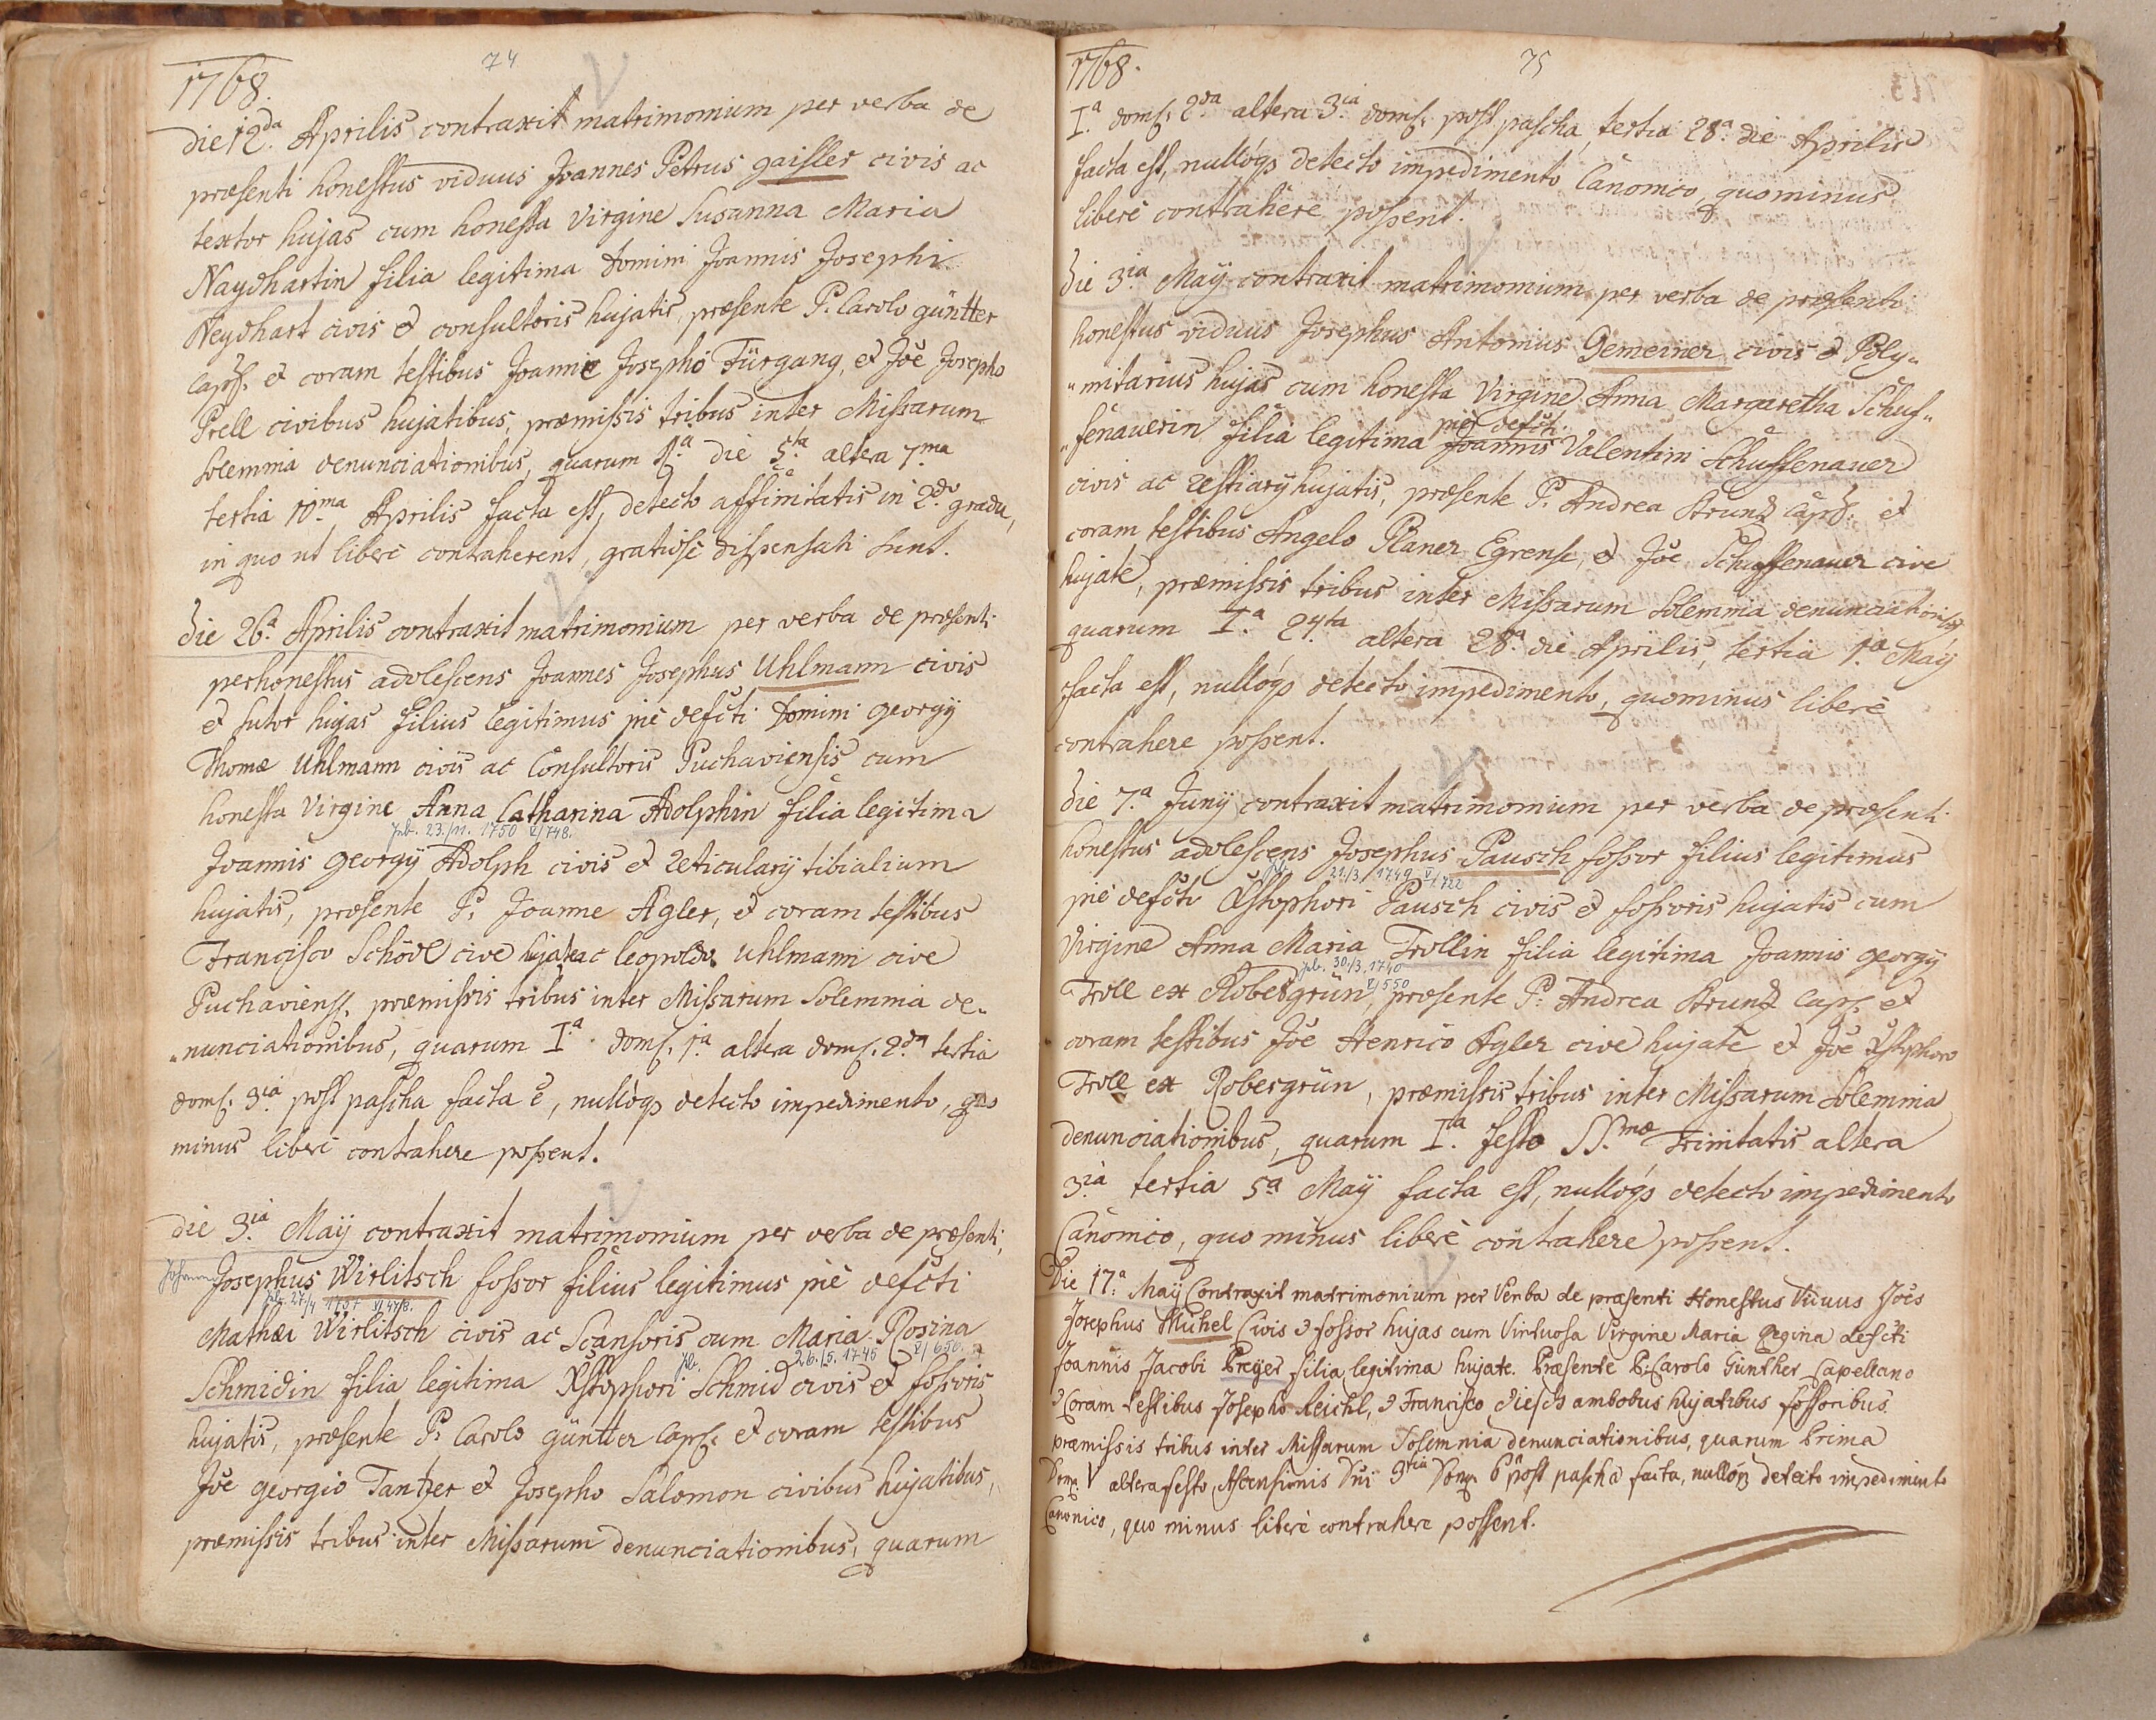 74
1768.
die 12da Aprilis contraxit matrimonium per verba de
præsenti honestus viduus Joannes Petrus gaisler civis ac
textor hujas cum honesta Virgine Susanna Maria
Naydhartin filia legitima Domini Joannis Josephi
Neydhart civis et consultoris hujatis, præsente P. Carolo güntter
Capl. et coram testibus Joanne Josepho Fürgang, et Joe Josepho
Prell civibus hujatibus, præmissis tribus inter Missarum
Solemnia denunciationibus, quarum 1.a die 5ta altera 7ma
tertia 10ma Aprilis facta est, detecto affinitatis in 2do gradu,
in quo ut liberè contraherent, gratiose dispensati sunt.
die 26.a Aprilis contraxit matrimonium per verba de præsenti
perhonestus adolescens Joannes Josephus Uhlmann civis
et sutor hujas filius legitimus piè defcti Domini georgÿ
Thomæ Uhlmann civis ac Consultoris Puchaviensis cum
honesta Virgine Anna Catharina Adolphin filia legitima
23./11. 1750 V/748.
Joannis georgÿ Adolph civis et reticularÿ tibialium
hujatis, præsente P. Joanne Agler, et coram testibus
Francisco Schödl cive hujate ac leopoldo Uhlmann cive
Puchaviens. præmissis tribus inter Missarum Solemnia de„
„nunciationibus, quarum I.a dom. 1.a altera dom. 2.da tertia
dom. 3.ia post pascha facta ē, nullóq detecto impedimento, quo
minus liberè contrahere possent.
die 3.ia Maÿ contraxit matrimonium per verba de præsenti,
Johann Josephus Wirlitsch fossor filius legitimus piè defcti
27/4 1737 V/478.
Mathæi Wirlitsch civis ac Scansoris cum Maria Rosina
26./5. 1745 V/650.
Schmidin filia legitima Xstophori Schmid civis et fossoris
hujatis, præsente P. Carolo güntter Capl. et coram testibus
Joe georgio Tantzer et Josepho Salomon civibus hujatibus,
præmissis tribus inter Missarum denunciationibus, quarum
75
1768.
I.a dom. 2da altera 3ia dom. post pascha, tertia 28.a die Aprilis
facta est, nullóq detecto impedimento Canonico, quominus
liberè contrahere possent.
die 3ia Maÿ contraxit matrimonium per verba de præsenti
honestus viduus Josephus Antonius Gemeiner civis et Poly„
„mitarius hujas cum honesta Virgine Anna Margaretha Schus„
piè defcti
„senauerin filia legitima Joannis Valentini Schussenauer
civis ac restiarÿ hujatis, præsente P. Andrea Strunz Capl. et
coram testibus Angelo Planer Egrense, et Joe Schussenauer cive
hujate, præmissis tribus inter Missarum Solemnia denunciationibus
quarum I.a 24ta altera 28.a die Aprilis, tertia 1.a Maÿ
facta est, nullóq detecto impedimento, quominus liberè
contrahere possent.
die 7.a Junÿ contraxit matrimonium per verba de præsenti
honestus adolescens Josephus Pausch fossor filius legitimus
21./3. 1749 V/722
piè defcti Xstophori Pausch civis et fossoris hujatis cum
Virgine Anna Maria Trollin filia legitima Joannis georgÿ
30/3. 1740 V/550
Troll ex Robesgrün, præsente P. Andrea Strunz Capl. et
coram testibus Joe Henrico Agler cive hujate et Joe Xstophoro
Troll ex Robesgrün, præmissis tribus inter Missarum Solemnia
denunciationibus, quarum I.a festo SS.mæ Trinitatis altera
3ia tertia 5.a Maÿ facta est, nullóq detecto impedimento
Canonico, quo minus liberè contrahere possent.
Die 17.a Maÿ Contraxit matrimonium per Verba de præsenti Honestus Viduus Joēs
Josephus Michel Civis et fossor hujas cum Virtuosa Virgine Maria Regina defcti
Joannis Jacobi Preyer filia legitima hujate. Præsente P. Carolo Günther Capellano
et Coram testibus Josepho Reichl, et Francisco Diesch ambobus hujatibus fossoribus
præmissis tribus inter Missarum Solemnia denunciationibus, quarum Prima
Dom. V altera festo Ascensionis Dni 3tia Dom. 6 post pascha facta, nullóq detecto impedimento
Canonico, quo minus liberè contrahere possent.